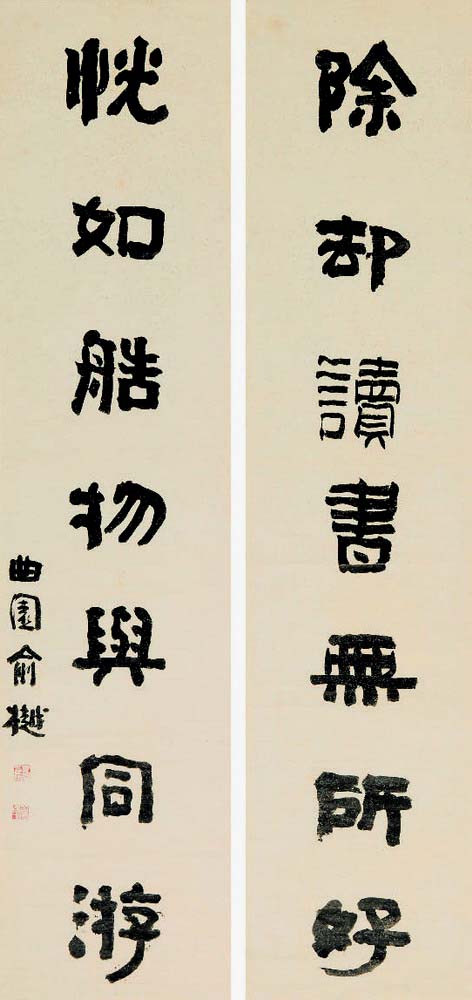 除却讀書無所好
恍如艁物與同游
曲園俞樾